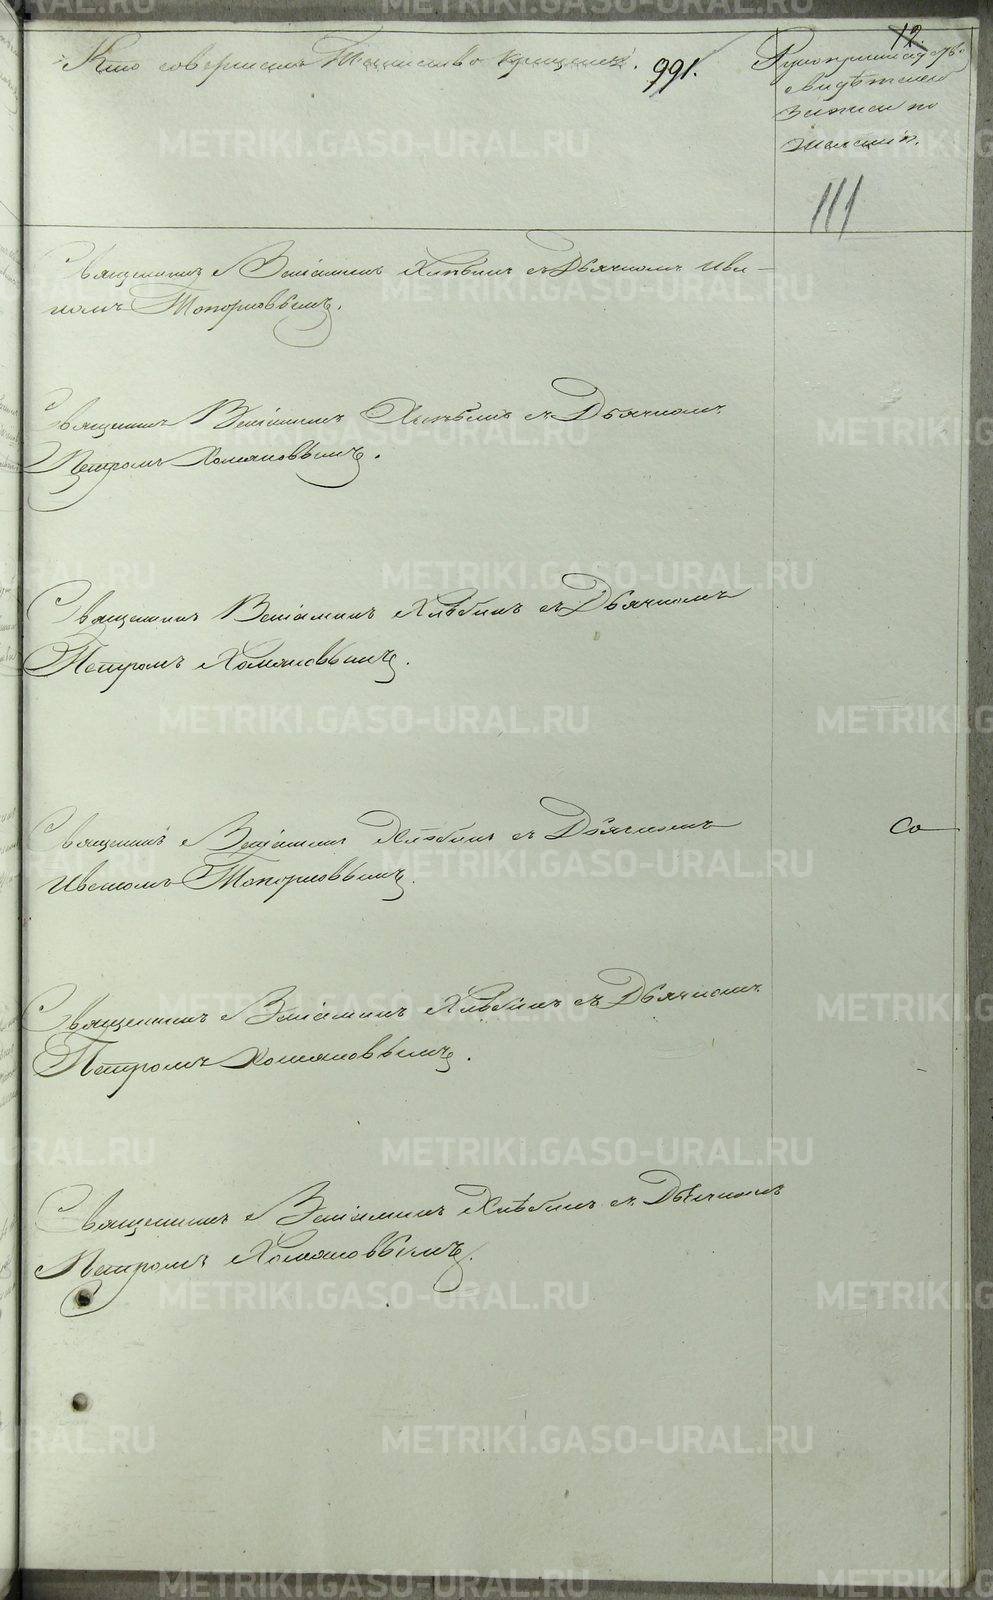 Кто совершалъ Таинство крещенія. 991.
12.
Рукоприкладство
свидѣтелей
записи по
желанію.
111
Священникъ Веніаминъ Хлѣбинъ съ Дьячкомъ Ива-
номъ Топорковымъ.
Священникъ Веніаминъ Хлѣбинъ съ Дьячкомъ
Петромъ Хомяковымъ.
Священникъ Веніаминъ Хлѣбинъ съ Дьячкомъ
Петромъ Хомяковымъ.
Священникъ Веніаминъ Хлѣбинъ съ Дьячкомъ
Иваномъ Топорковымъ.
Со
Священникъ Веніаминъ Хлѣбинъ съ Дьячкомъ
Петромъ Хомяковымъ.
Священникъ Веніаминъ Хлѣбинъ съ Дьячкомъ
Петромъ Хомяковымъ.
METRIKI.GASO-URAL.RU